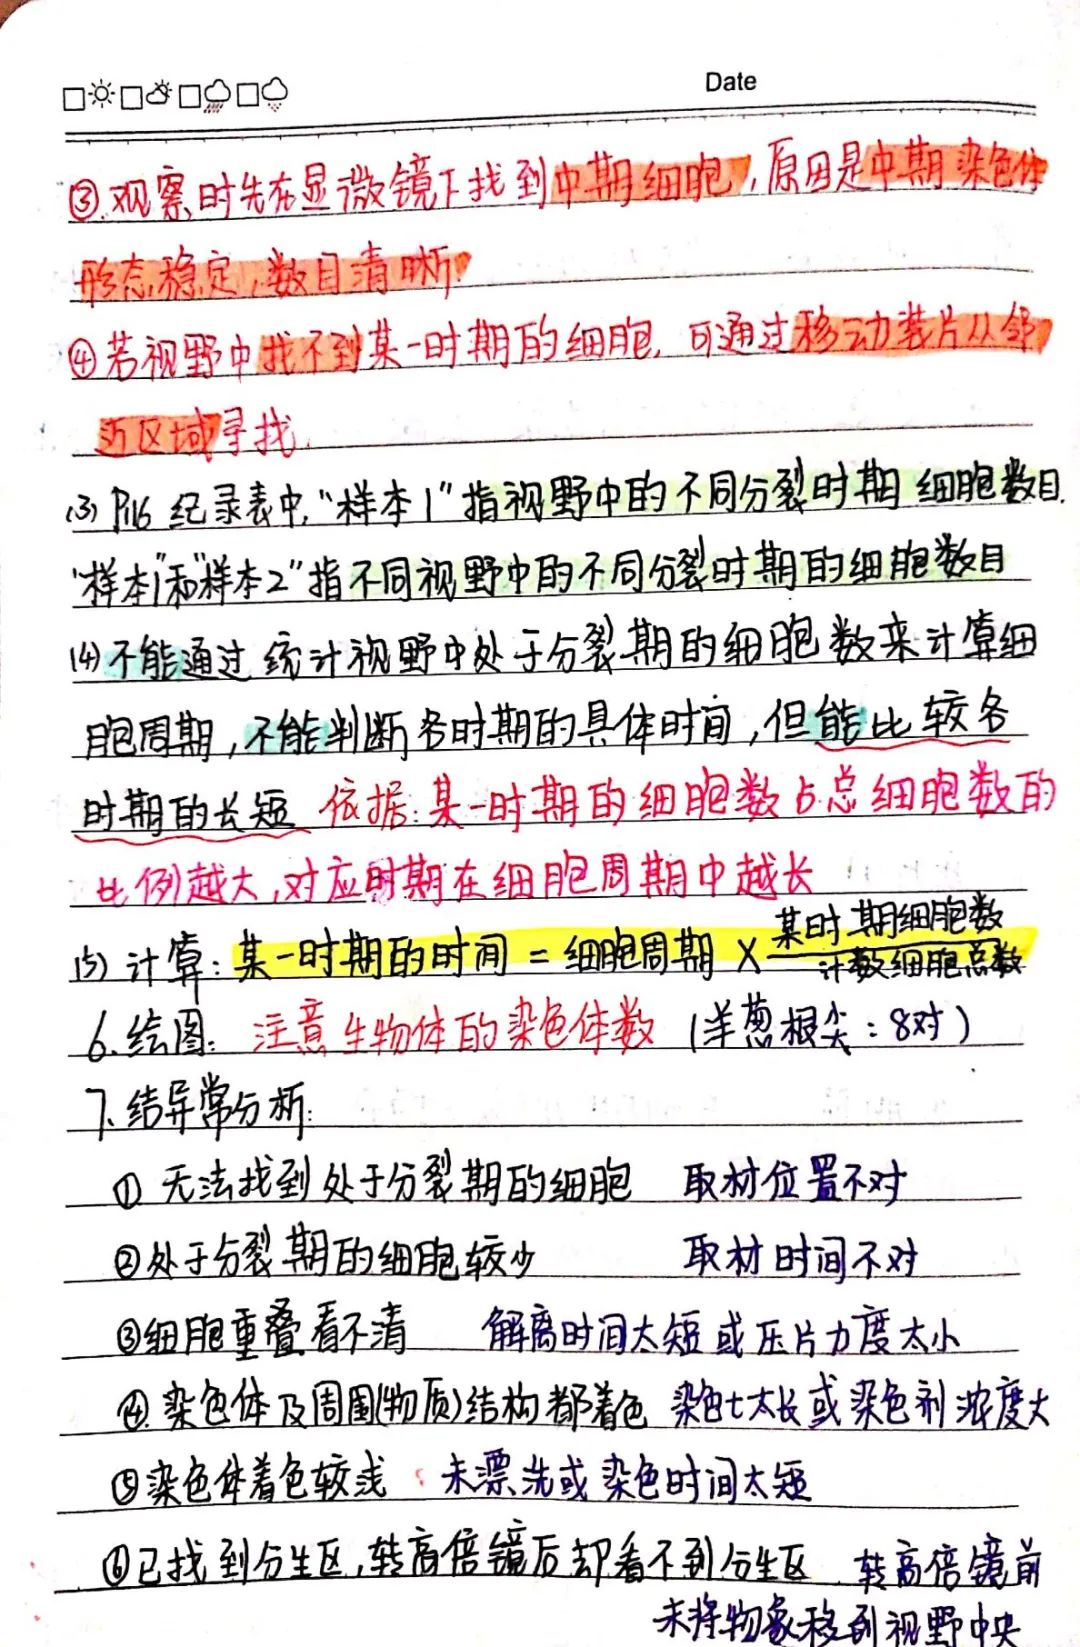 Date
③.观察时先在显微镜下找到中期细胞,原因是中期染色体
形态稳定,数目清晰.
④若视野中找不到某一时期的细胞,可通过移动装片从邻
近区域寻找.
(3) P116 纪录表中,"样本1"指视野中的不同分裂时期细胞数目.
"样本1"和"样本2"指不同视野中的不同分裂时期的细胞数目
(4)不能通过统计视野中处于分裂期的细胞数来计算细
胞周期,不能判断各时期的具体时间,但能比较各
时期的长短 依据:某一时期的细胞数占总细胞数的
比例越大,对应时期在细胞周期中越长
(5)计算:某一时期的时间=细胞周期×某时期细胞数
计数细胞总数
6.绘图:注意生物体的染色体数(洋葱根尖:8对)
7.结异常分析:
①无法找到处于分裂期的细胞 取材位置不对
②处于分裂期的细胞较少 取材时间不对
③细胞重叠看不清 解离时间太短或压片力度太小
④.染色体及周围(物质)结构都着色 染色t太长或染色剂浓度大
⑤染色体着色较浅 未漂洗或染色时间太短
⑥已找到分生区,转高倍镜后却看不到分生区 转高倍镜前
未将物象移到视野中央